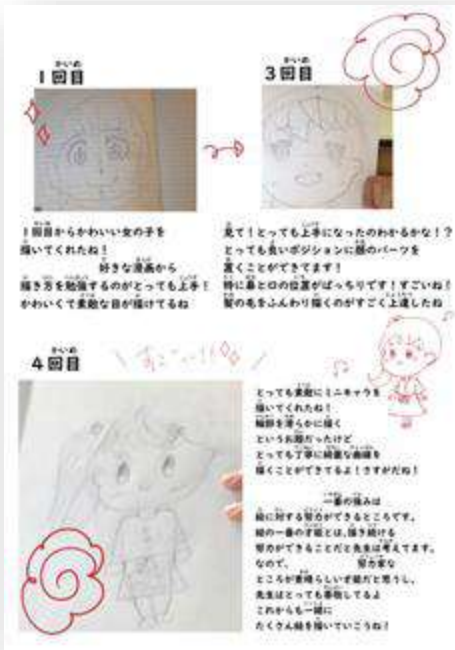 1回目
3回目
1回目からかわいい女の子を
描いてくれたね!
好きな漫画から
描き方を勉強するのがとっても上手!
かわいくて素敵な目が描けてるね
見て!とっても上手になったのわかるかな!?
とっても良いポジションに顔のパーツを
置くことができてます!
特に鼻と口の位置がばっちりです!すごいね!
髪の毛をふんわり描くのがすごく上達したね
4回目
すごーい!!
とっても素敵にミニキャラを
描いてくれたね!
輪郭を滑らかに描く
というお題だったけど
とっても丁寧に綺麗な曲線を
描くことができてるよ!さすがだね!
一番の強みは
絵に対する努力ができるところです。
絵の一番の才能とは、描き続ける
努力ができることだと先生は考えてます。
なので、 努力家な
ところが素晴らしい才能だと思うし、
先生はとっても尊敬してるよ
これからも一緒に
たくさん絵を描いていこうね!